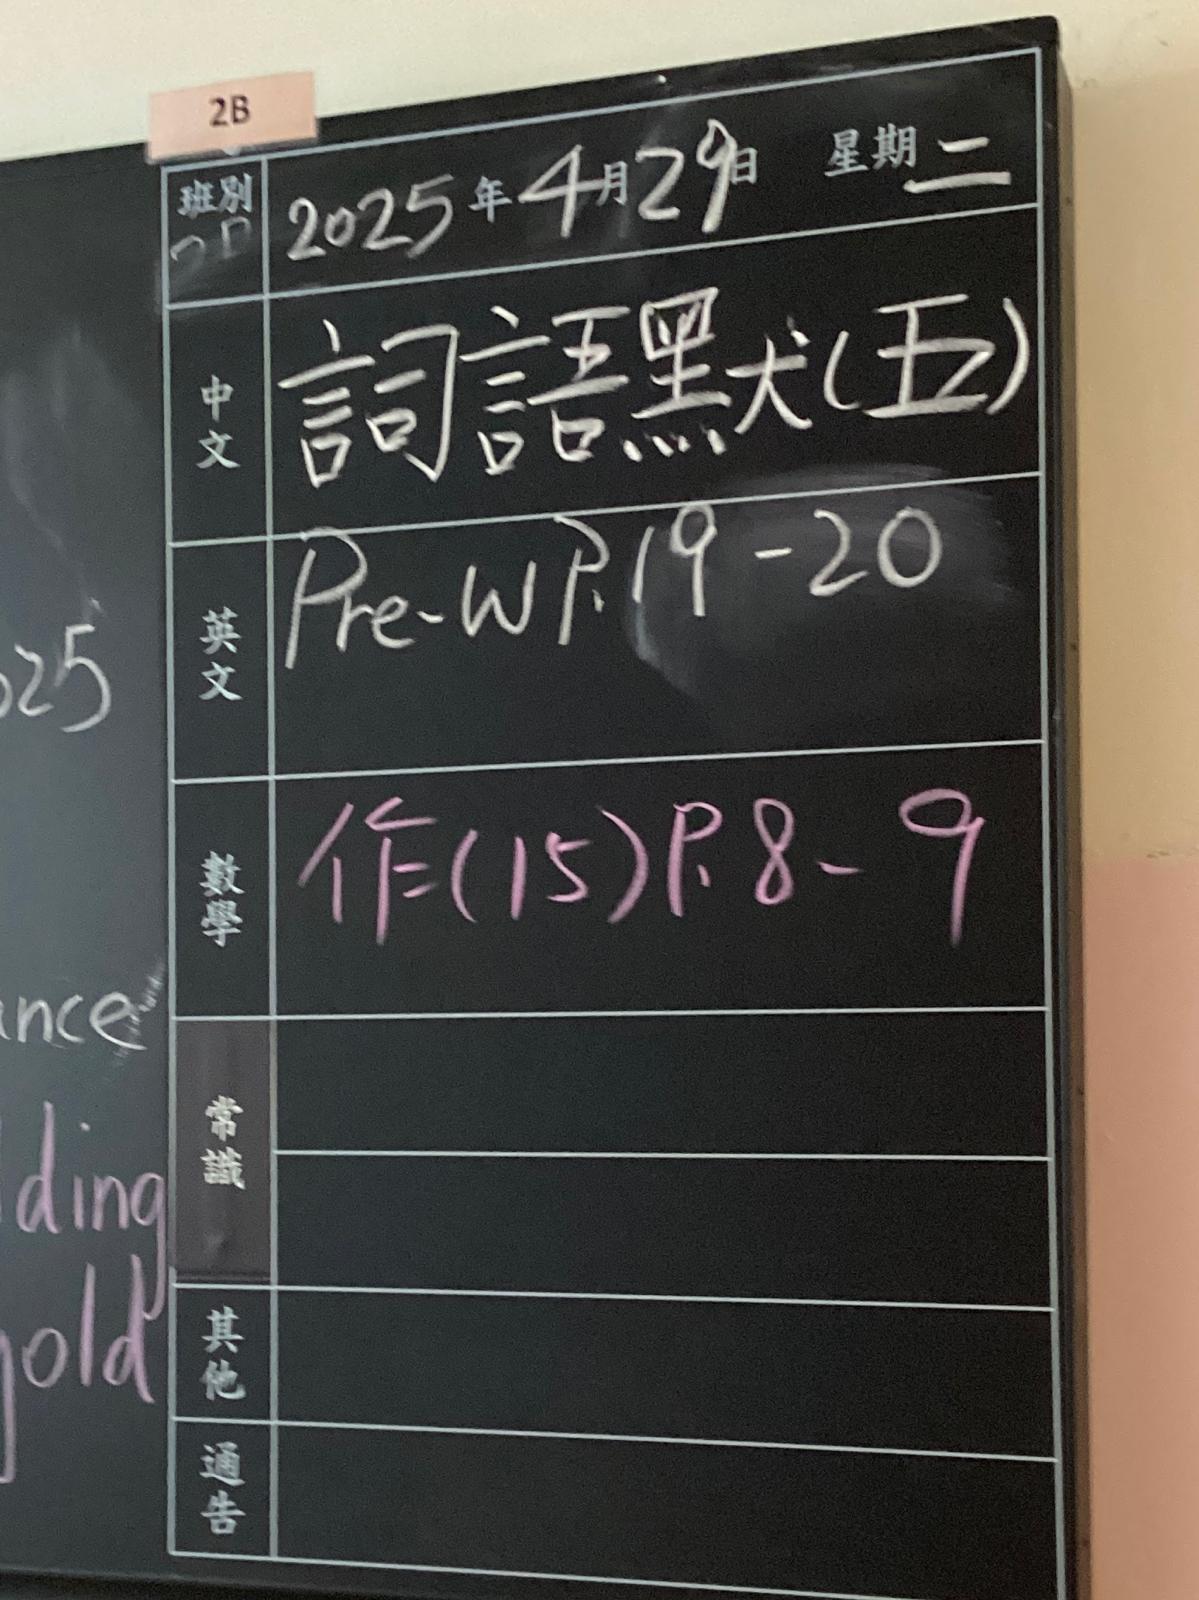 2B
班別 2025年4月29日 星期二
中文 詞語默(五)
英文 Pre-W P.19-20
數學 作(15)P.8-9
常識
其他
通告
025
ance
ding
gold